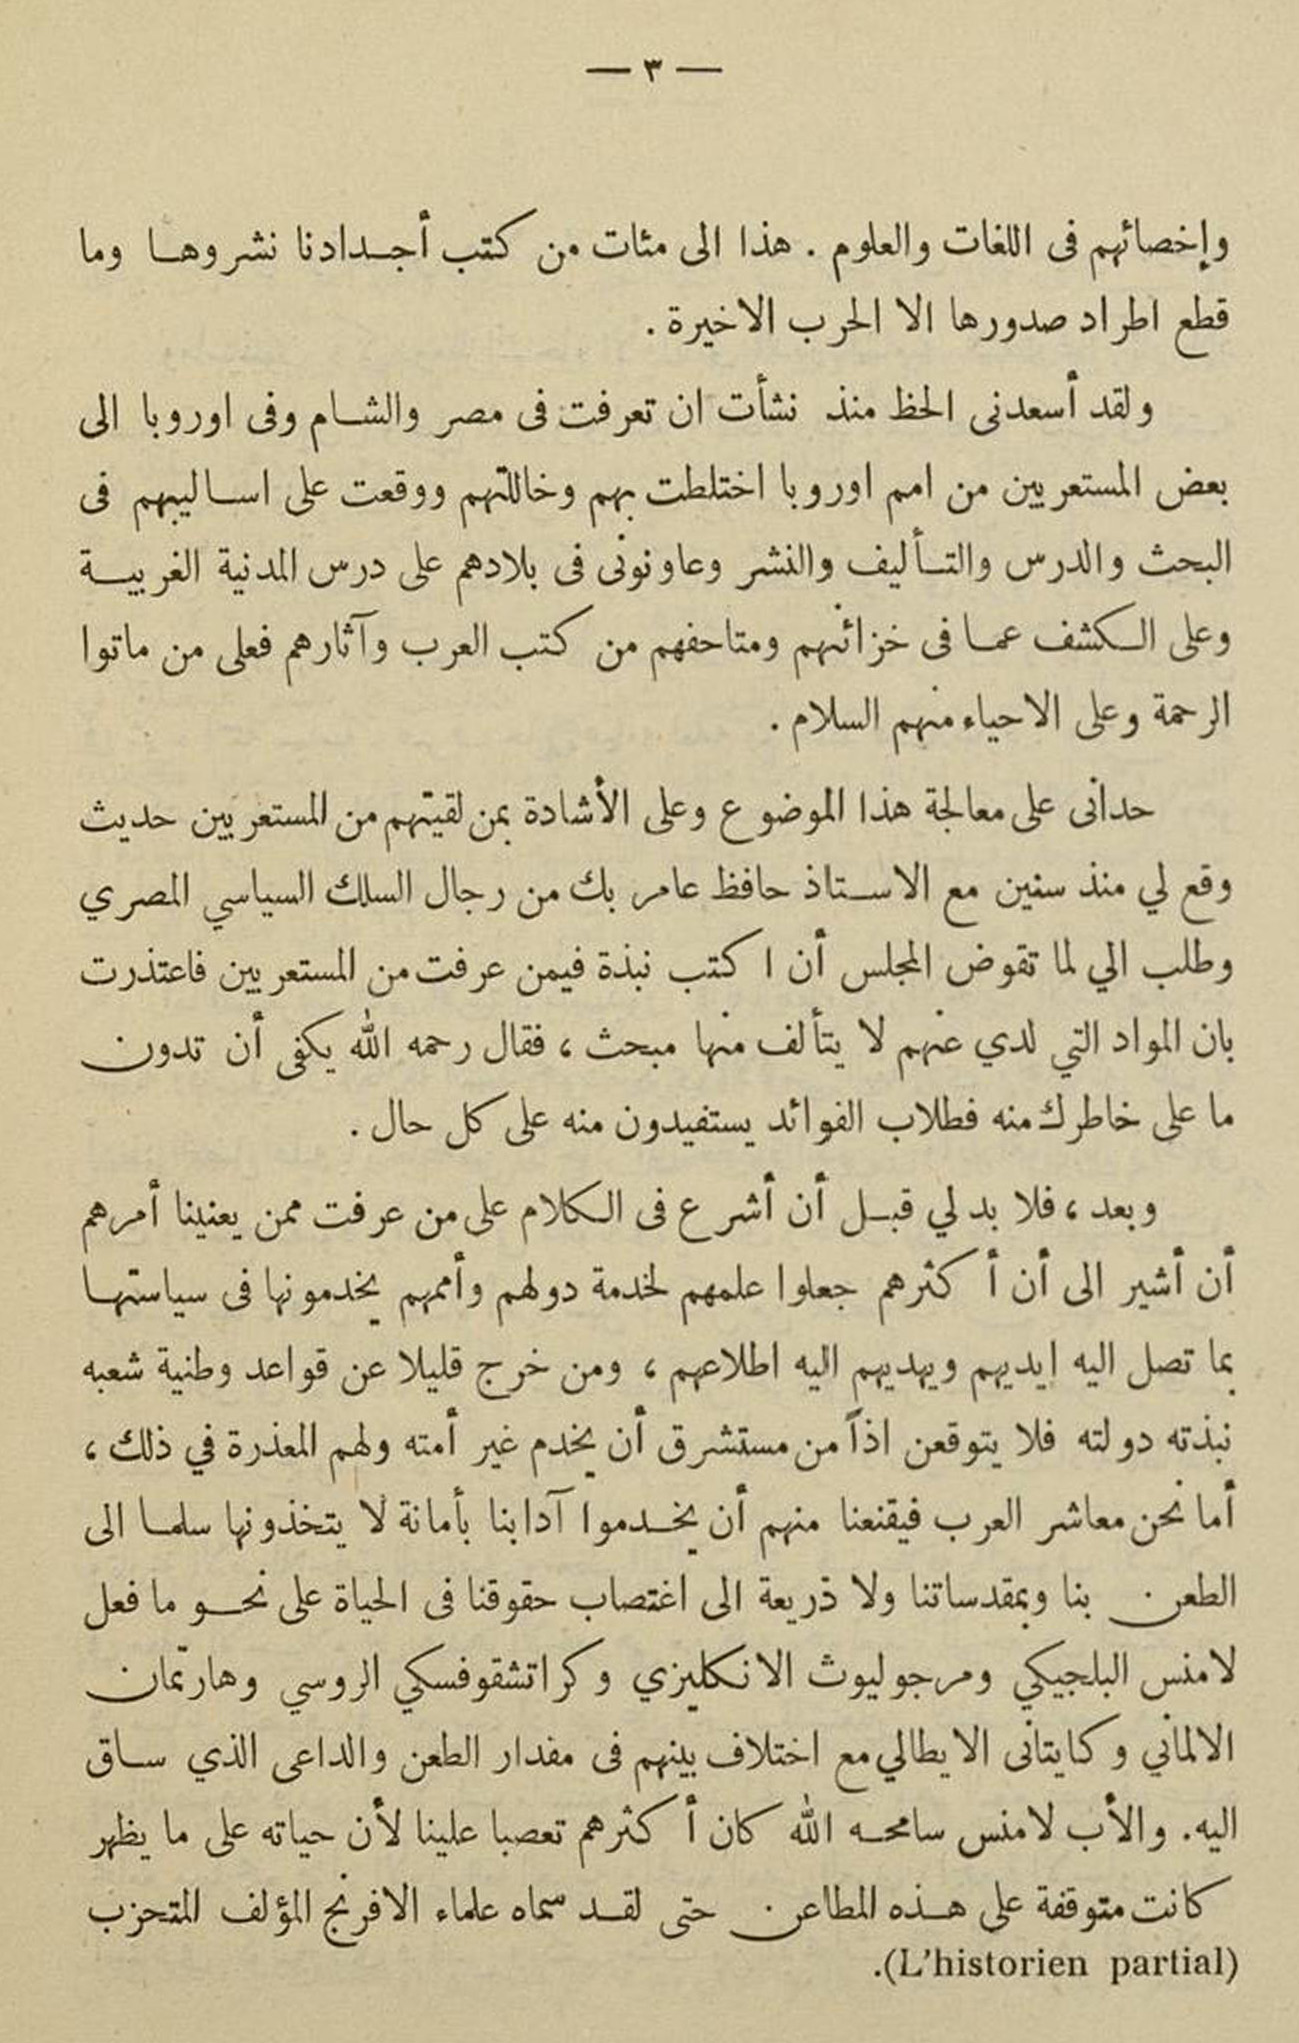 — ٣ —
وإخصائهم فى اللغات والعلوم . هذا الى مئات من كتب أجدادنا نشروها وما
قطع اطراد صدورها الا الحرب الاخيرة .
ولقد أسعدنى الحظ منذ نشأت ان تعرفت فى مصر والشام وفى اوروبا الى
بعض المستعربين من امم اوروبا اختلطت بهم وخاللتهم ووقعت على اساليبهم فى
البحث والدرس والتأليف والنشر وعاونونى فى بلادهم على درس المدنية الغربية
وعلى الكشف عما فى خزائنهم ومتاحفهم من كتب العرب وآثارهم فعلى من ماتوا
الرحمة وعلى الاحياء منهم السلام .
حدانى على معالجة هذا الموضوع وعلى الأشادة بمن لقيتهم من المستعربين حديث
وقع لي منذ سنين مع الاستاذ حافظ عامر بك من رجال السلك السياسي المصري
وطلب الي لما تقوض المجلس أن اكتب نبذة فيمن عرفت من المستعربين فاعتذرت
بان المواد التي لدي عنهم لا يتألف منها مبحث ، فقال رحمه الله يكفى أن تدون
ما على خاطرك منه فطلاب الفوائد يستفيدون منه على كل حال .
وبعد ، فلا بد لي قبل أن أشرع فى الكلام على من عرفت ممن يعنينا أمرهم
أن أشير الى أن أكثرهم جعلوا علمهم لخدمة دولهم وأممهم يخدمونها فى سياستها
بما تصل اليه ايديهم ويهديهم اليه اطلاعهم ، ومن خرج قليلا عن قواعد وطنية شعبه
نبذته دولته فلا يتوقعن اذاً من مستشرق أن يخدم غير أمته ولهم المعذرة في ذلك ،
أما نحن معاشر العرب فيقنعنا منهم أن يخدموا آدابنا بأمانة لا يتخذونها سلما الى
الطعن بنا وبمقدساتنا ولا ذريعة الى اغتصاب حقوقنا فى الحياة على نحو ما فعل
لامنس البلجيكي ومرجوليوث الانكليزي وكراتشقوفسكي الروسي وهارتمان
الالماني وكايتانى الايطالي مع اختلاف بينهم فى مفدار الطعن والداعى الذي ساق
اليه. والأب لامنس سامحه الله كان أكثرهم تعصبا علينا لأن حياته على ما يظهر
كانت متوقفة على هذه المطاعن حتى لقد سماه علماء الافرنج المؤلف المتحزب
(L'historien partial).